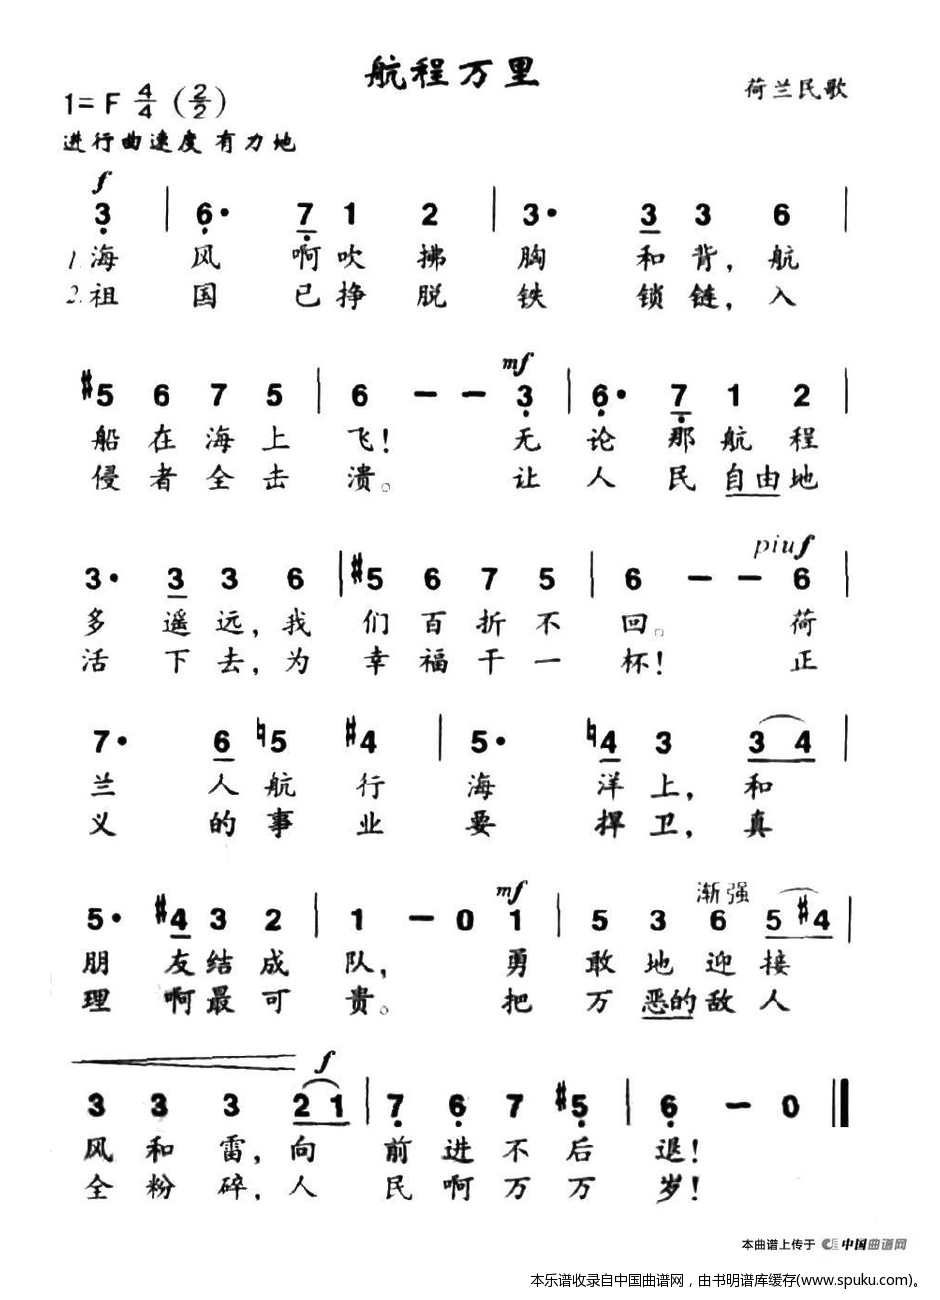 航程万里
荷兰民歌
1= F 4/4 (2/2)
进行曲速度 有力地
f
3 | 6· 7 1 2 | 3· 3 3 6 |
1.海 风 啊 吹 拂 胸 和 背，航
2.祖 国 已 挣 脱 铁 锁 链，入
mf
#5 6 7 5 | 6 - - 3 | 6· 7 1 2 |
船 在 海 上 飞！ 无 论 那 航 程
侵 者 全 击 溃。 让 人 民 自由地
piuf
3· 3 3 6 | #5 6 7 5 | 6 - - 6 |
多 遥 远，我 们 百 折 不 回。 荷
活 下 去，为 幸 福 干 一 杯！ 正
7· 6 ♮5 #4 | 5· ♮4 3 3 4 |
兰 人 航 行 海 洋 上，和
义 的 事 业 要 捍 卫，真
mf 渐强
5· #4 3 2 | 1 - 0 1 | 5 3 6 5 #4 |
朋 友 结 成 队， 勇 敢 地 迎 接
理 啊 最 可 贵。 把 万 恶的 敌 人
f
3 3 3 2 1 | 7 6 7 #5 | 6 - 0 ‖
风 和 雷，向 前 进 不 后 退！
全 粉 碎，人 民 啊 万 万 岁！
本曲谱上传于 中国曲谱网
本乐谱收录自中国曲谱网，由书明谱库缓存(www.spuku.com)。